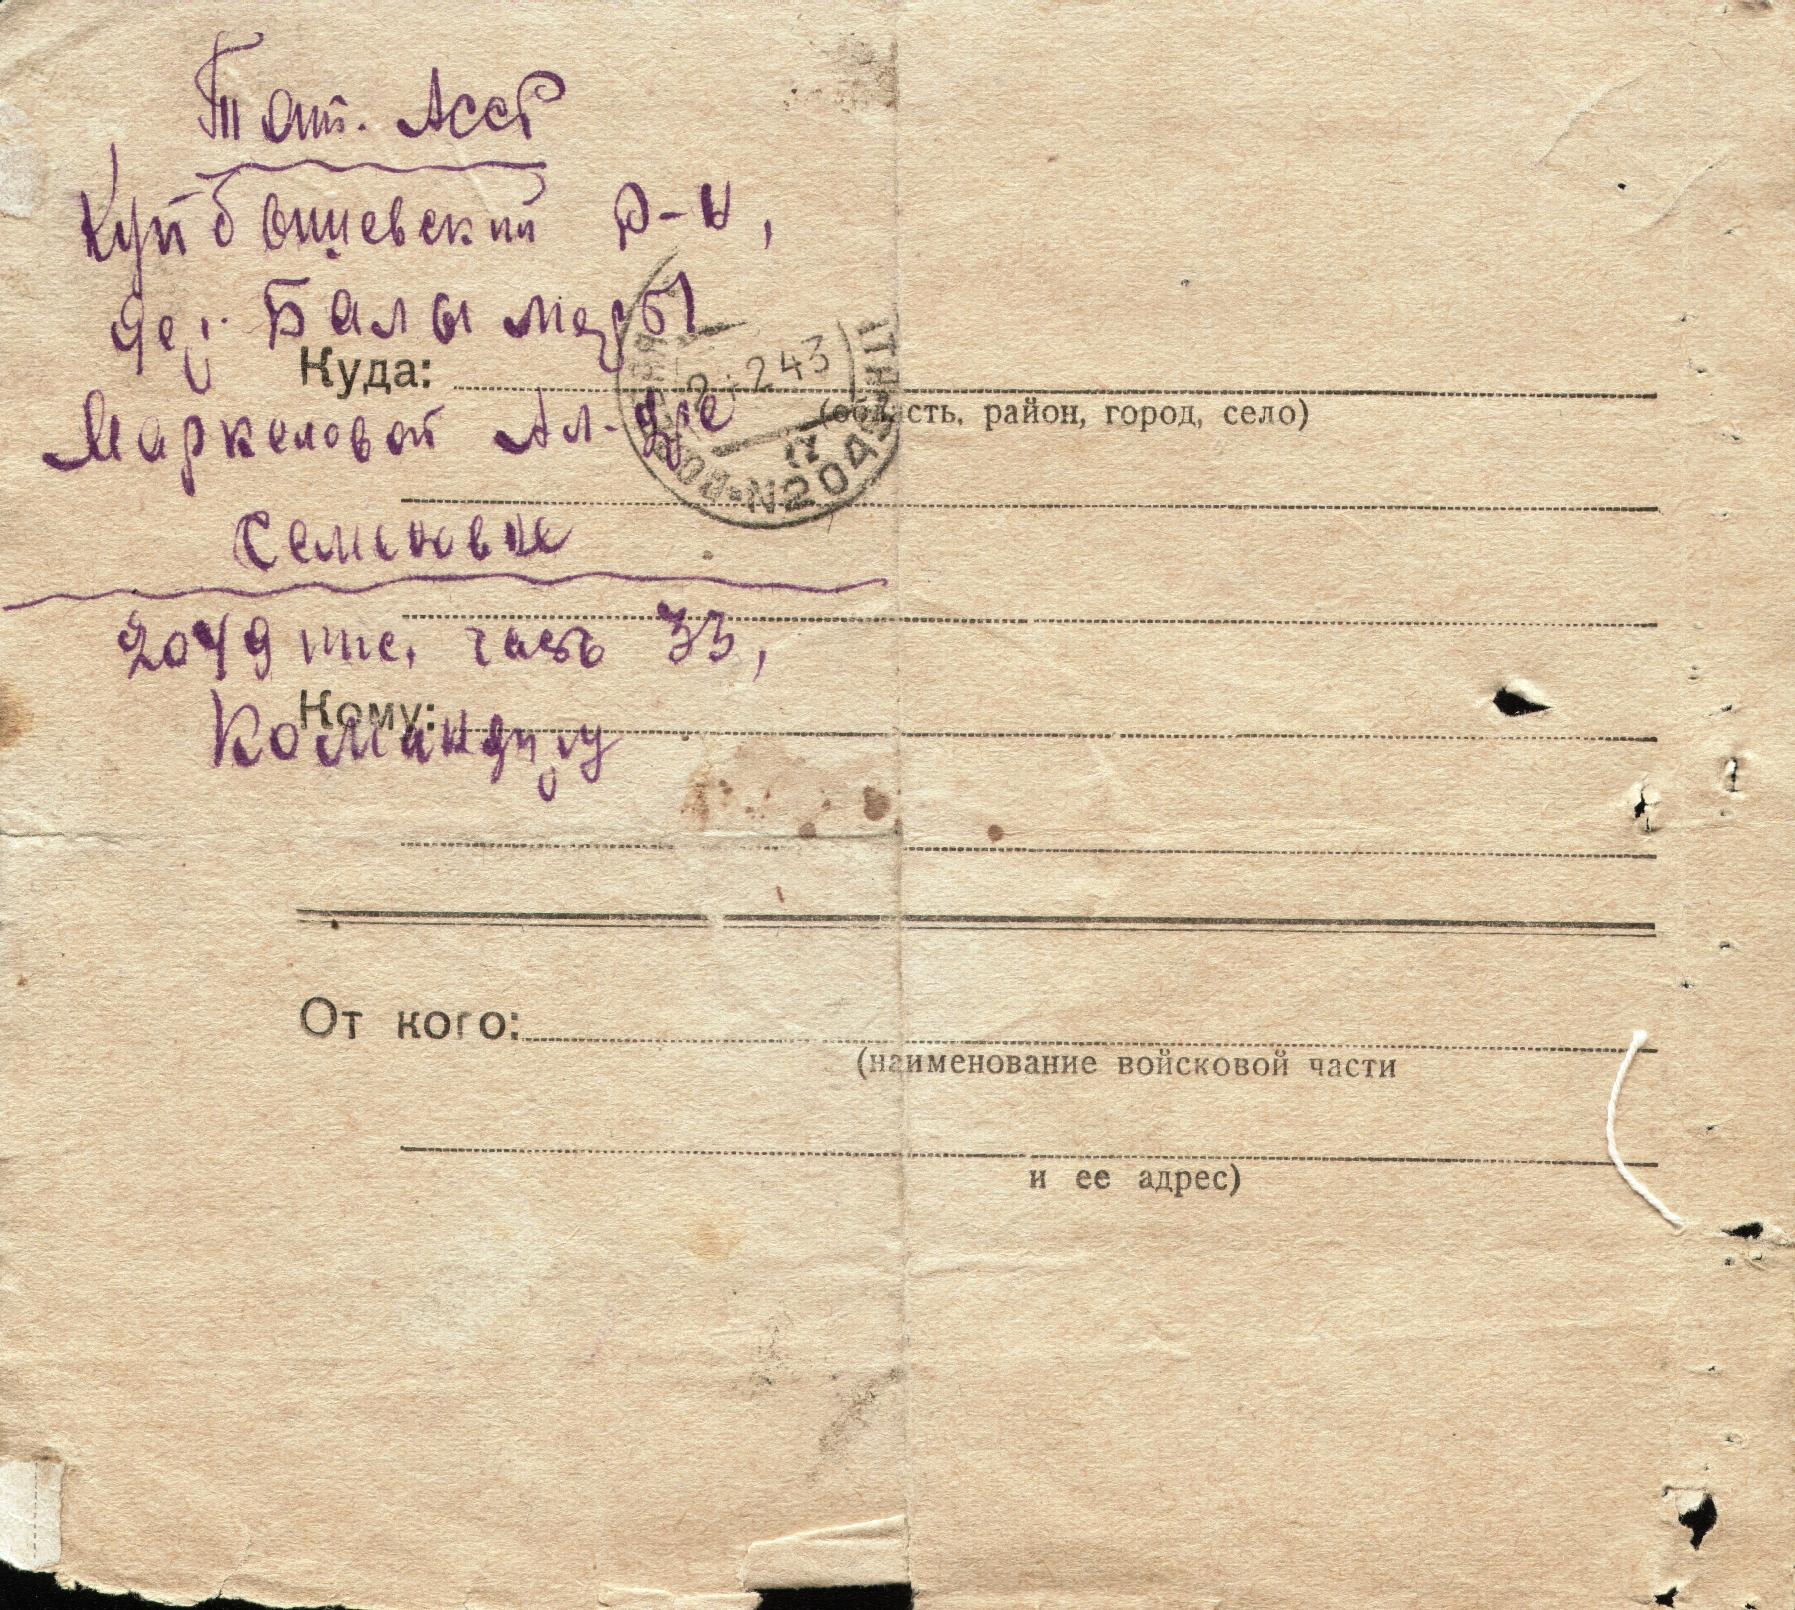 Тат. АССР
Куйбышевский р-н,
дер. Балымеры
Куда:
2 2 43
(область, район, город, село)
Маркеловой Ал-дре
N2043
Семеновне
2049 ппс, часть 33,
Кому:
Командиру
От кого:
(наименование войсковой части
и ее адрес)